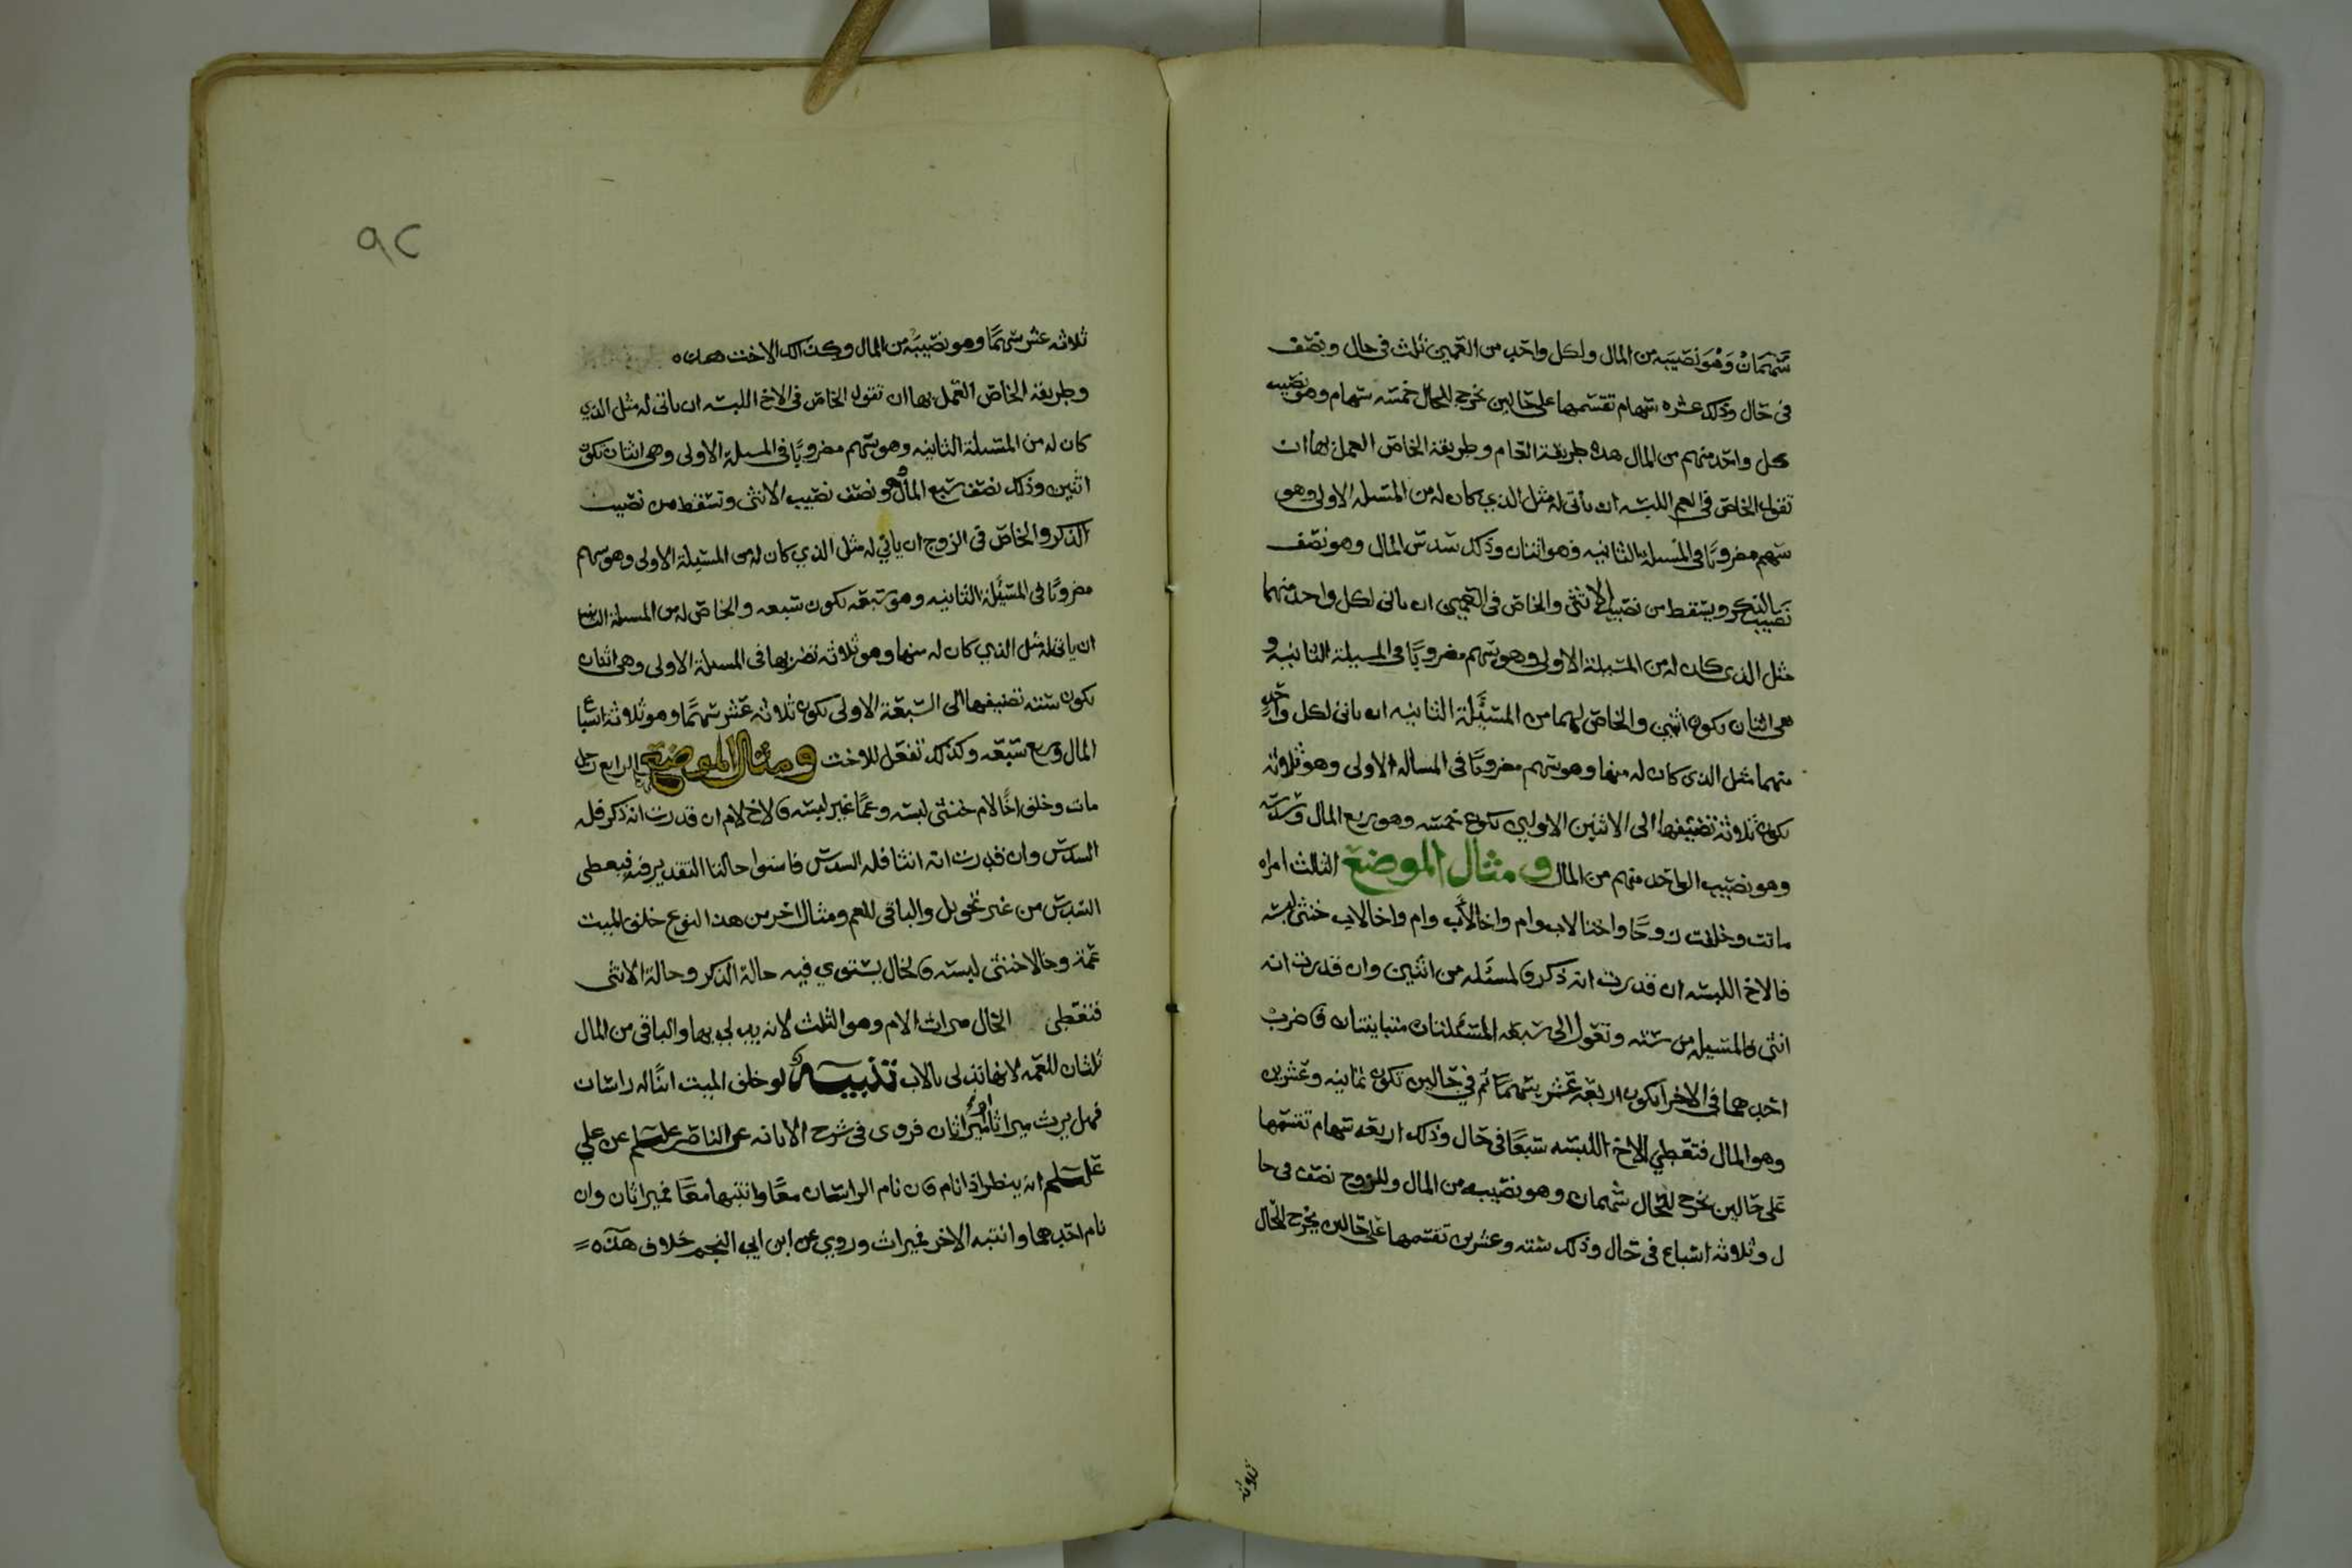 سهمان وهو نصيبه من المال ولكل واحد من العمين ثلث في حال ونصف
في حال وذلك عشره سهام تقسمها على حالين يخرج للحال خمسه سهام وهو نصيب
كل واحد منهم من المال هذه طريقة العام وطريقة الخاص العمل بها ان
تقول الخاص في العم اللبسه ان ياتى له مثل الذي كان له من المسئله الاولى وهو
سهم مضروبًا في المسئلة الثانيه وهو اثنان وذلك سدس المال وهو نصف
نصيب الذكر ويسقط من نصيب الانثى والخاص في العمين ان ياتى لكل واحد منهما
مثل الذي كان له من المسئلة الاولى وهو سهم مضروبًا في المسئلة الثانيه و
هى اثنان يكون اثنين والخاص لهما من المسئلة الثانيه ان ياتى لكل واحد
منهما مثل الذي كان له منها وهو سهم مضروبًا في المساله الاولى وهو ثلاثه
يكون ثلاثة تضيفها الى الاثنين الاوليين يكون خمسه وهو ربع المال وسدسه
وهو نصيب الواحد منهم من المال ومثال الموضع الثالث امراه
ماتت وخلفت زوجًا واختا لاب وام واخا لأب وام واخا لاب خنثى لبسه
فالاخ اللبسه ان قدرت انه ذكر فالمسئله من اثنين وان قدرت انه
انثى فالمسئله من سته وتعول الى سبعه المسئلتان متباينتان فاضرب
احدهما في الاخرى يكون اربعة عشر سهمًا ثم في حالين تكون ثمانيه وعشرين
وهو المال فتعطي الاخ اللبسه سبعًا في حال وذلك اربعه سهام تقسمها
على حالين يخرج للحال سهمان وهو نصيبه من المال وللزوج نصف في حا
ل وثلاثه اسباع في حال وذلك سته وعشرين تقسمها على حالين يخرج للحال
ثلاثه
٩٢
ثلاثه عشر سهمًا وهو نصيبه من المال وكذلك الاخت
وطريقة الخاص العمل بها ان تقول الخاص في الاخ اللبسه ان ياتى له مثل الذي
كان له من المسئلة الثانيه وهو سهم مضروبًا في المسئله الاولى وهى اثنان تكون
اثنين وذلك نصف سبع المال وهو نصف نصيب الانثى وتسقط من نصيب
الذكر والخاص في الزوج ان ياتي له مثل الذي كان له من المسئلة الاولى وهو سهم
مضروبًا في المسئلة الثانيه وهو سبعه يكون سبعه والخاص له من المسئلة الثانيه
ان ياتى له مثل الذي كان له منها وهو ثلاثه تضربها في المسئلة الاولى وهى اثنان
يكون سته تضيفها الى السبعة الاولى يكون ثلاثه عشر سهمًا وهو ثلاثة اسباع
المال وربع سبعه وكذلك تفعل للاخت ومثال الموضع الرابع رجل
مات وخلف اخًا لام خنثى لبسه وعمًا غير لبسه فالاخ لام ان قدرت انه ذكر فله
السدس وان قدرت انه انثا فله السدس فاستوا حالتا التقدير فيه فيعطى
السدس من غير تحويل والباقى للعم ومثال اخر من هذا النوع خلف الميت
عمة وخالا خنثى لبسه فالخال يستوي فيه حالة الذكر وحالة الانثى
فتعطى الخال ميراث الام وهو الثلث لانه يدلي بها والباقى من المال
ثلثان للعمه لانها تدلى بالاب تنبيه لو خلف الميت ابنًا له راسان
فهل يرث ميراثا او ميراثان فروى في شرح الابانه عن الناصر علسلم عن علي
علسلم انه ينظر اذا نام فان نام الراسان معًا وانتبها معًا فميراثان وان
نام احدهما وانتبه الاخر فميراث وروي عن ابن ابي النجم خلاف هذه